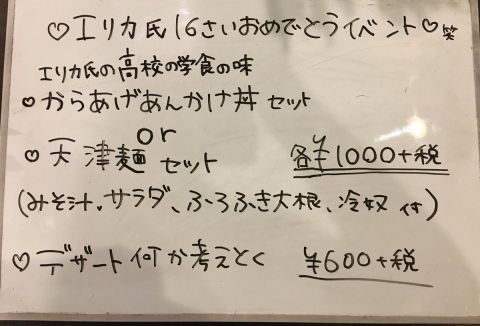 ♡エリカ氏16さいおめでとうイベント♡笑
エリカ氏の高校の学食の味
♡からあげあんかけ丼セット
or
♡天津麺セット 各¥1000+税
(みそ汁、サラダ、ふろふき大根、冷奴付)
♡デザート何か考えとく ¥600+税